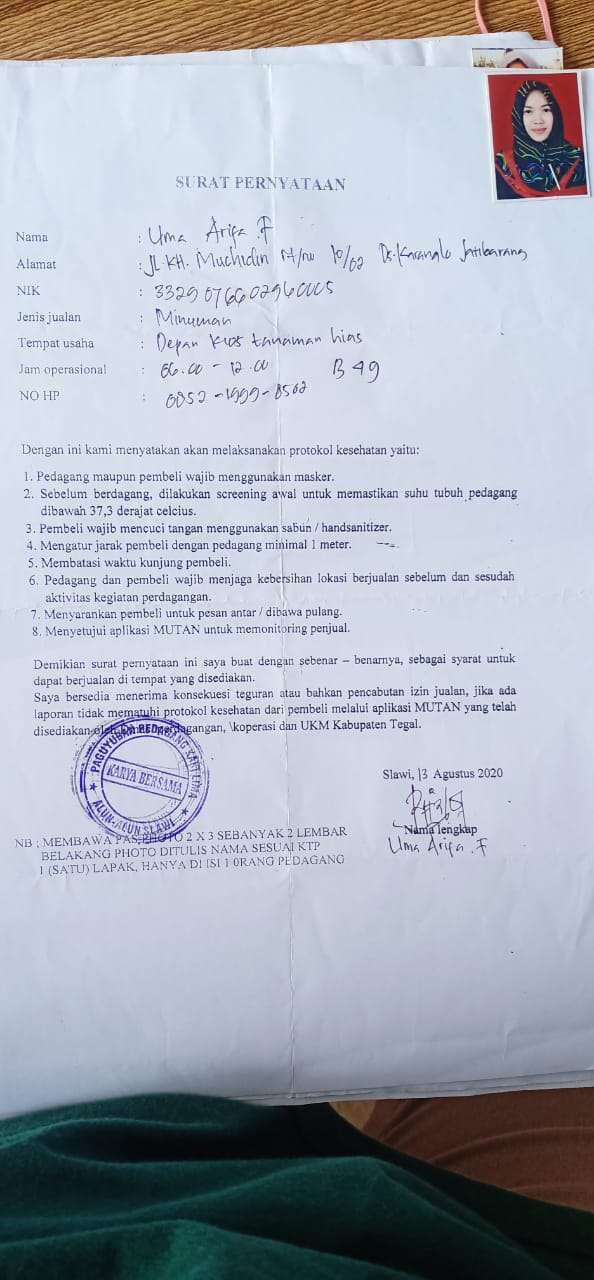 SURAT PERNYATAAN
Nama : Uma Arifa .F
Alamat : JL KH. Muchidin Rt/rw 10/02 Ds. Karanglo Jatibarang
NIK :
Jenis jualan : Minuman
Tempat usaha : Depan Kios tanaman hias
Jam operasional : 06.00 - 12.00 B 49
NO HP : 0852-1999-8502
Dengan ini kami menyatakan akan melaksanakan protokol kesehatan yaitu:
1. Pedagang maupun pembeli wajib menggunakan masker.
2. Sebelum berdagang, dilakukan screening awal untuk memastikan suhu tubuh pedagang
dibawah 37,3 derajat celcius.
3. Pembeli wajib mencuci tangan menggunakan sabun / handsanitizer.
4. Mengatur jarak pembeli dengan pedagang minimal 1 meter.
5. Membatasi waktu kunjung pembeli.
6. Pedagang dan pembeli wajib menjaga kebersihan lokasi berjualan sebelum dan sesudah
aktivitas kegiatan perdagangan.
7. Menyarankan pembeli untuk pesan antar / dibawa pulang.
8. Menyetujui aplikasi MUTAN untuk memonitoring penjual.
Demikian surat pernyataan ini saya buat dengan sebenar – benarnya, sebagai syarat untuk
dapat berjualan di tempat yang disediakan.
Saya bersedia menerima konsekuesi teguran atau bahkan pencabutan izin jualan, jika ada
laporan tidak mematuhi protokol kesehatan dari pembeli melalui aplikasi MUTAN yang telah
disediakan oleh Dinas Perdagangan, \koperasi dan UKM Kabupaten Tegal.
PAGUYUBAN PEDAGANG KAKI LIMA
KARYA BERSAMA
ALUN-ALUN SLAWI
Slawi, 13 Agustus 2020
Nama lengkap
Uma Arifa .F
NB ; MEMBAWA PAS PHOTO 2 X 3 SEBANYAK 2 LEMBAR
BELAKANG PHOTO DITULIS NAMA SESUAI KTP
1 (SATU) LAPAK, HANYA DI ISI 1 0RANG PEDAGANG